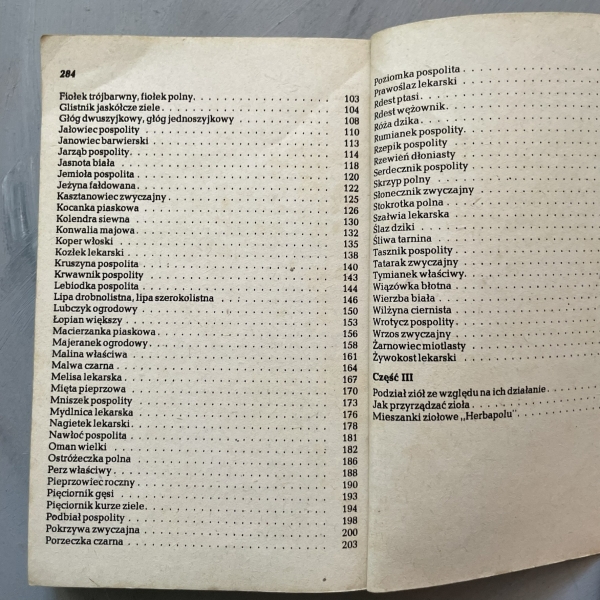 284
Fiołek trójbarwny, fiołek polny . . . . . . . . . . 103
Glistnik jaskółcze ziele . . . . . . . . . . 104
Głóg dwuszyjkowy, głóg jednoszyjkowy . . . . . . . . . . 108
Jałowiec pospolity . . . . . . . . . . 110
Janowiec barwierski . . . . . . . . . . 113
Jarząb pospolity . . . . . . . . . . 114
Jasnota biała . . . . . . . . . . 118
Jemioła pospolita . . . . . . . . . . 120
Jeżyna fałdowana . . . . . . . . . . 122
Kasztanowiec zwyczajny . . . . . . . . . . 125
Kocanka piaskowa . . . . . . . . . . 126
Kolendra siewna . . . . . . . . . . 130
Konwalia majowa . . . . . . . . . . 132
Koper włoski . . . . . . . . . . 135
Kozłek lekarski . . . . . . . . . . 138
Kruszyna pospolita . . . . . . . . . . 140
Krwawnik pospolity . . . . . . . . . . 143
Lebiodka pospolita . . . . . . . . . . 144
Lipa drobnolistna, lipa szerokolistna . . . . . . . . . . 146
Lubczyk ogrodowy . . . . . . . . . . 150
Łopian większy . . . . . . . . . . 153
Macierzanka piaskowa . . . . . . . . . . 156
Majeranek ogrodowy . . . . . . . . . . 158
Malina właściwa . . . . . . . . . . 161
Malwa czarna . . . . . . . . . . 164
Melisa lekarska . . . . . . . . . . 167
Mięta pieprzowa . . . . . . . . . . 170
Mniszek pospolity . . . . . . . . . . 173
Mydlnica lekarska . . . . . . . . . . 176
Nagietek lekarski . . . . . . . . . . 178
Nawłoć pospolita . . . . . . . . . . 181
Oman wielki . . . . . . . . . . 182
Ostróżeczka polna . . . . . . . . . . 186
Perz właściwy . . . . . . . . . . 188
Pieprzowiec roczny . . . . . . . . . . 190
Pięciornik gęsi . . . . . . . . . . 193
Pięciornik kurze ziele . . . . . . . . . . 194
Podbiał pospolity . . . . . . . . . . 198
Pokrzywa zwyczajna . . . . . . . . . . 200
Porzeczka czarna . . . . . . . . . . 203
Poziomka pospolita . . . . . . . . . .
Prawoślaz lekarski . . . . . . . . . .
Rdest ptasi . . . . . . . . . .
Rdest wężownik . . . . . . . . . .
Róża dzika . . . . . . . . . .
Rumianek pospolity . . . . . . . . . .
Rzepik pospolity . . . . . . . . . .
Rzewień dłoniasty . . . . . . . . . .
Serdecznik pospolity . . . . . . . . . .
Skrzyp polny . . . . . . . . . .
Słonecznik zwyczajny . . . . . . . . . .
Stokrotka polna . . . . . . . . . .
Szałwia lekarska . . . . . . . . . .
Ślaz dziki . . . . . . . . . .
Śliwa tarnina . . . . . . . . . .
Tasznik pospolity . . . . . . . . . .
Tatarak zwyczajny . . . . . . . . . .
Tymianek właściwy . . . . . . . . . .
Wiązówka błotna . . . . . . . . . .
Wierzba biała . . . . . . . . . .
Wilżyna ciernista . . . . . . . . . .
Wrotycz pospolity . . . . . . . . . .
Wrzos zwyczajny . . . . . . . . . .
Żarnowiec miotlasty . . . . . . . . . .
Żywokost lekarski . . . . . . . . . .
Część III
Podział ziół ze względu na ich działanie . . . . .
Jak przyrządzać zioła . . . . . . . . . .
Mieszanki ziołowe „Herbapolu" . . . . . . . . . .